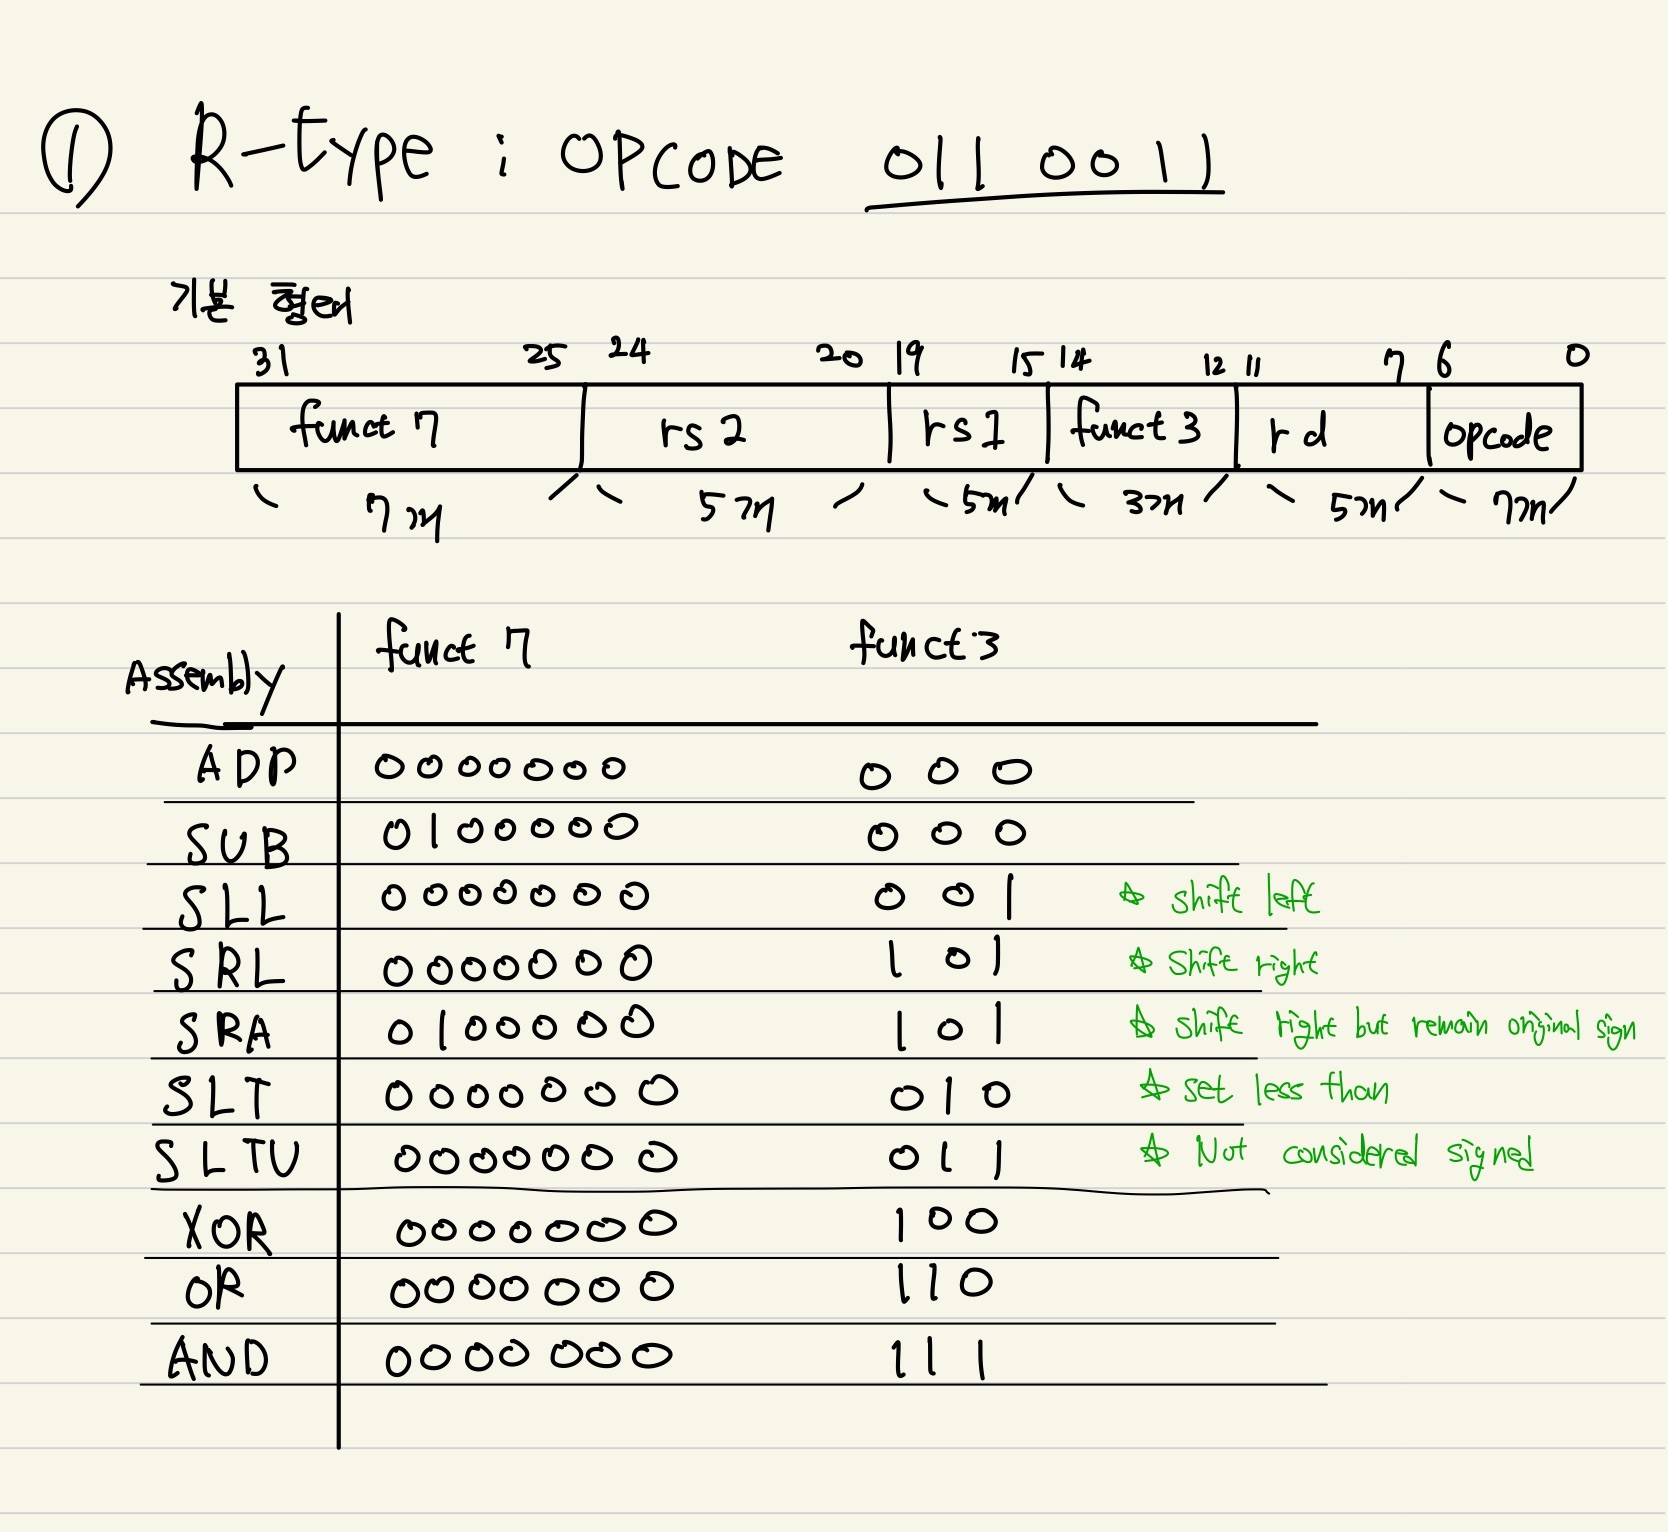 ① R-type : OPCODE 011 0011
기본 형태
31 25 24 20 19 15 14 12 11 7 6 0
funct 7 rs2 rs1 funct 3 rd opcode
7개 5개 5개 3개 5개 7개
Assembly funct 7 funct 3
ADD 0000000 000
SUB 0100000 000
SLL 0000000 001 ☆ shift left
SRL 0000000 101 ☆ Shift right
SRA 0100000 101 ☆ shift right but remain original sign
SLT 0000000 010 ☆ set less than
SLTU 0000000 011 ☆ Not considered signed
XOR 0000000 100
OR 0000000 110
AND 0000000 111